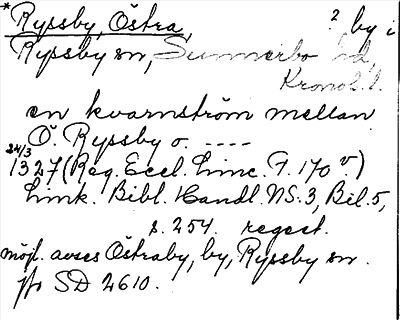 * Ryssby, Östra, ? by i
Ryssby sn, Sunnerbo hd,
Kronob. l.
en kvarnström mellan
Ö. Ryssby o. ----
24/3
1327 (Reg. Eccl. Linc. F. 170 v.)
Link. Bibl. Handl. NS. 3, Bil. 5,
s. 254. regest.
möjl. avses Östraby, by, Ryssby sn.
jfr SD 2610.